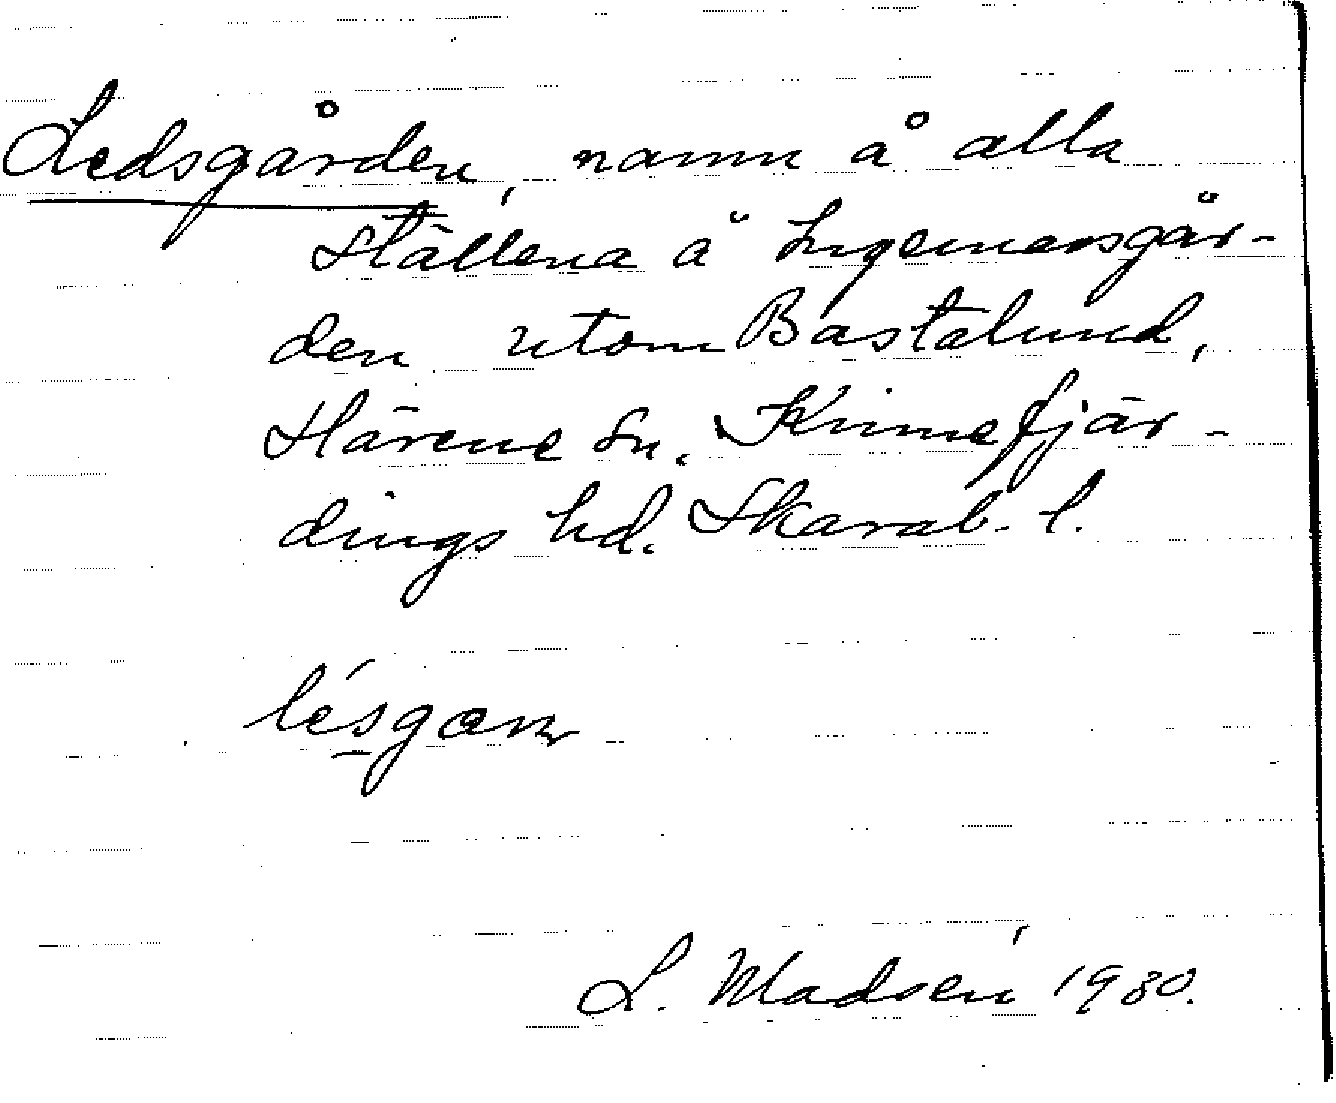 Ledsgården, namn å alla
ställena å Ingemarsgår-
den utom Bastalund,
Härene sn. Kinnefjär-
dings hd. Skarab. l.
lésgɑn
L. Madsén 1930.